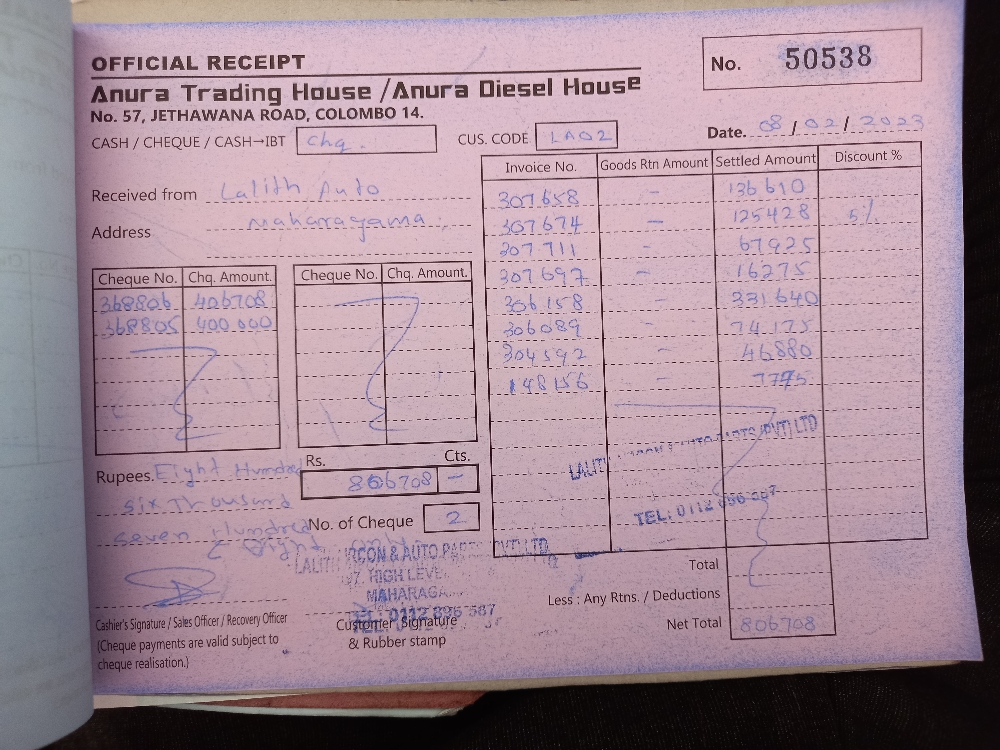 OFFICIAL RECEIPT
No. 50538
Anura Trading House /Anura Diesel House
No. 57, JETHAWANA ROAD, COLOMBO 14.
CASH / CHEQUE / CASH→IBT chq.
CUS. CODE LA02
Date. 08 / 02 / 2023
Received from Lalith Auto
Address maharagama.
Invoice No. Goods Rtn Amount Settled Amount Discount %
307658 – 136610
307674 – 125428 5%
307711 – 67925
307697 – 16275
306158 – 331640
306089 – 74175
304592 – 46880
148156 – 7795
Cheque No. Chq. Amount. Cheque No. Chq. Amount.
368806 406708
368805 400 000
Rupees. Eight Hundred
six Thousand
seven Hundred
Eight
Rs. Cts.
806708 –
No. of Cheque 2
LALITH
AUTO PARTS (PVT) LTD
TEL: 0112 896
LALITH IRCON & AUTO PARTS (PVT) LTD
HIGH LEVEL
MAHARAGAMA
TEL: 0112 896 587
Cashier's Signature / Sales Officer / Recovery Officer
(Cheque payments are valid subject to
cheque realisation.)
Customer Signature
& Rubber stamp
Total
Less : Any Rtns. / Deductions
Net Total 806708